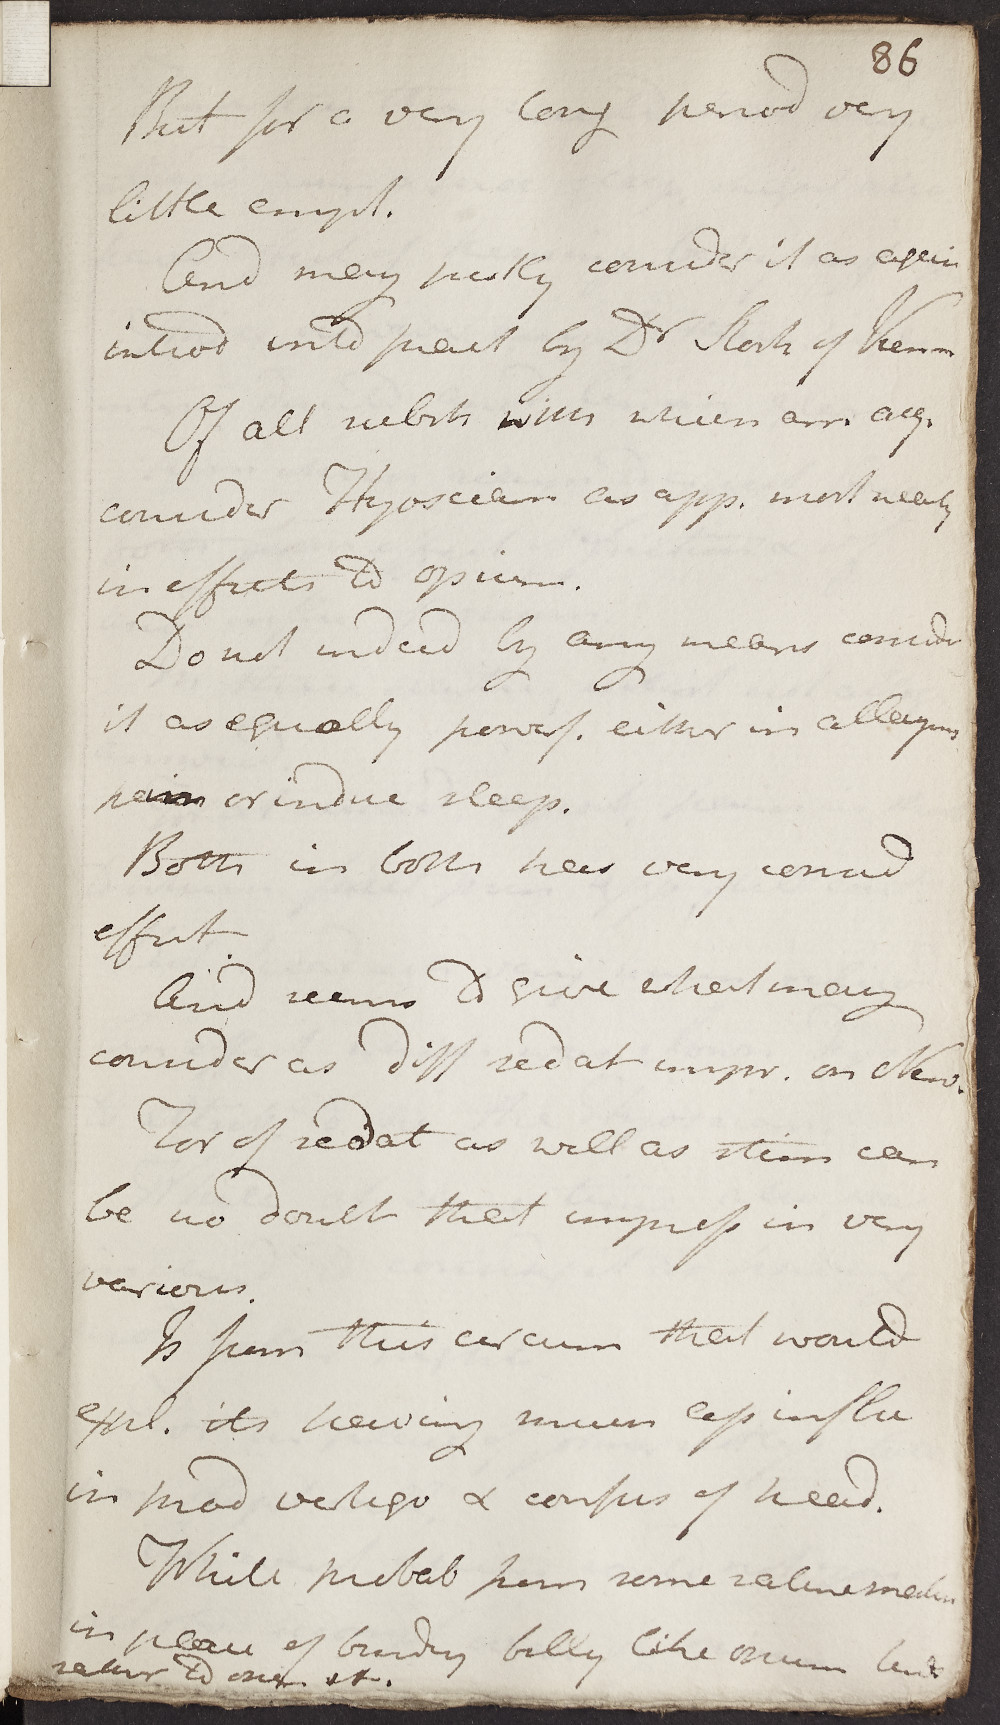 86
But for a very long period very
little empl.
And may justly consider it as again
introd into pract by Dr Stork of Vienn
Of all substs with which am acq.
consider Hyosciam as app. most nearly
in effects to opium.
Do not indeed by any means consider
it as equally powerf. either in allaying
pain or induce sleep.
Both in both has very consid
effect
And seems to give what may
consider as diff sedat impr. on Nerv.
For of sedat as well as stim can
be no doubt that impress in very
various.
Is from this circum that would
expl. its having much less influ
in prod vertigo & confus of head.
While probab from some saline
in place of bindg belly like opium
rather to open it.